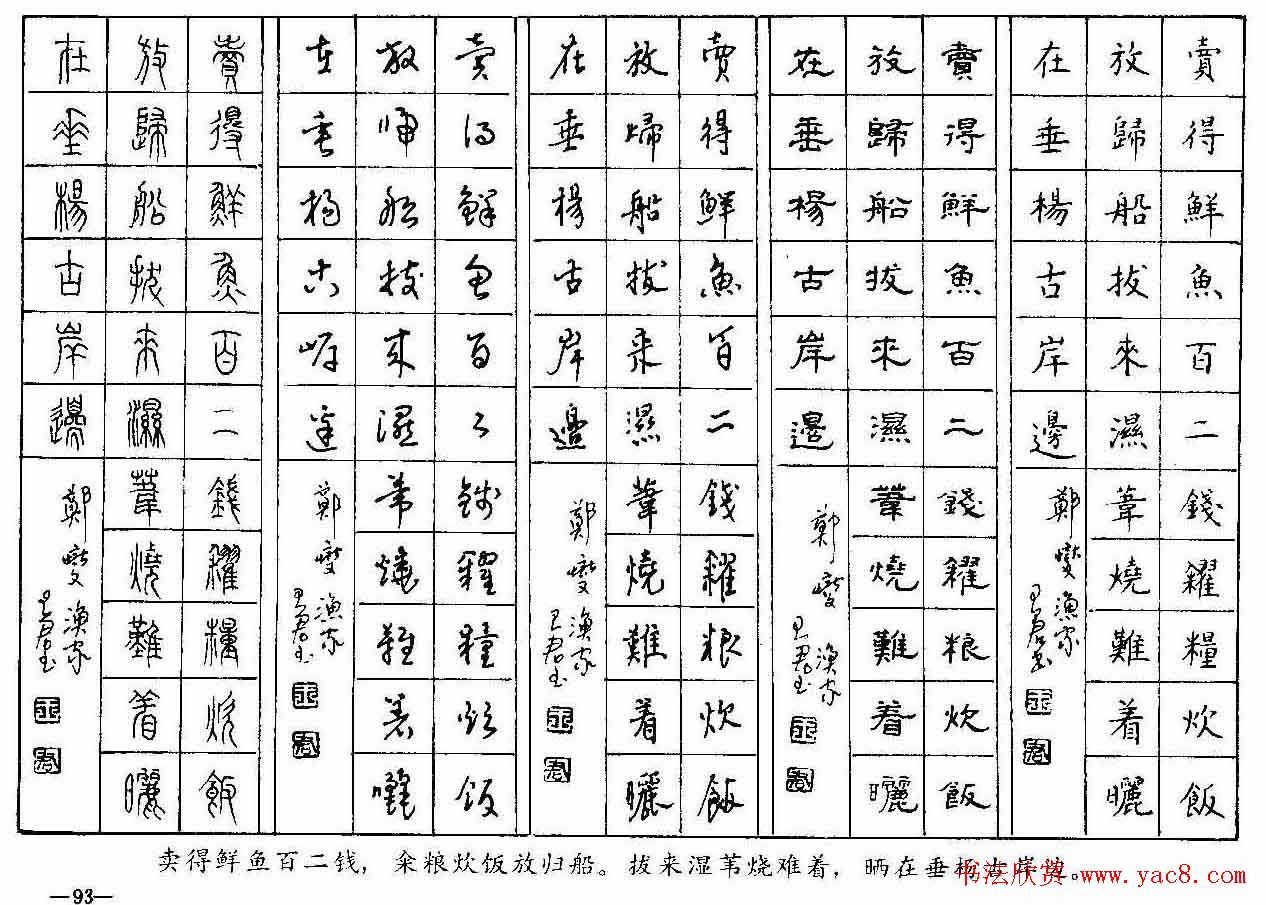 賣得鮮魚百二錢糴糧炊飯
放歸船拔來濕葦燒難着曬
在垂楊古岸邊
鄭燮漁家
王君书
王
君
賣得鮮魚百二錢糴粮炊飯
放歸船拔來濕葦燒難着曬
在垂楊古岸邊
鄭燮漁家
王君书
王
君
賣得鮮魚百二錢糴粮炊飯
放歸船拔來濕葦燒難着曬
在垂楊古岸邊
鄭燮漁家
王君书
王
君
賣得鮮魚百二錢糴糧炊飯
放歸船拔來濕葦燒難着曬
在垂楊古岸邊
鄭燮漁家
王君书
王
君
賣得鮮魚百二錢糴糧炊飯
放歸船拔來濕葦燒難着曬
在垂楊古岸邊
鄭燮漁家
王君书
王
君
卖得鲜鱼百二钱，籴粮炊饭放归船。拔来湿苇烧难着，晒在垂杨古岸边。
书法欣赏 www.yac8.com
—93—